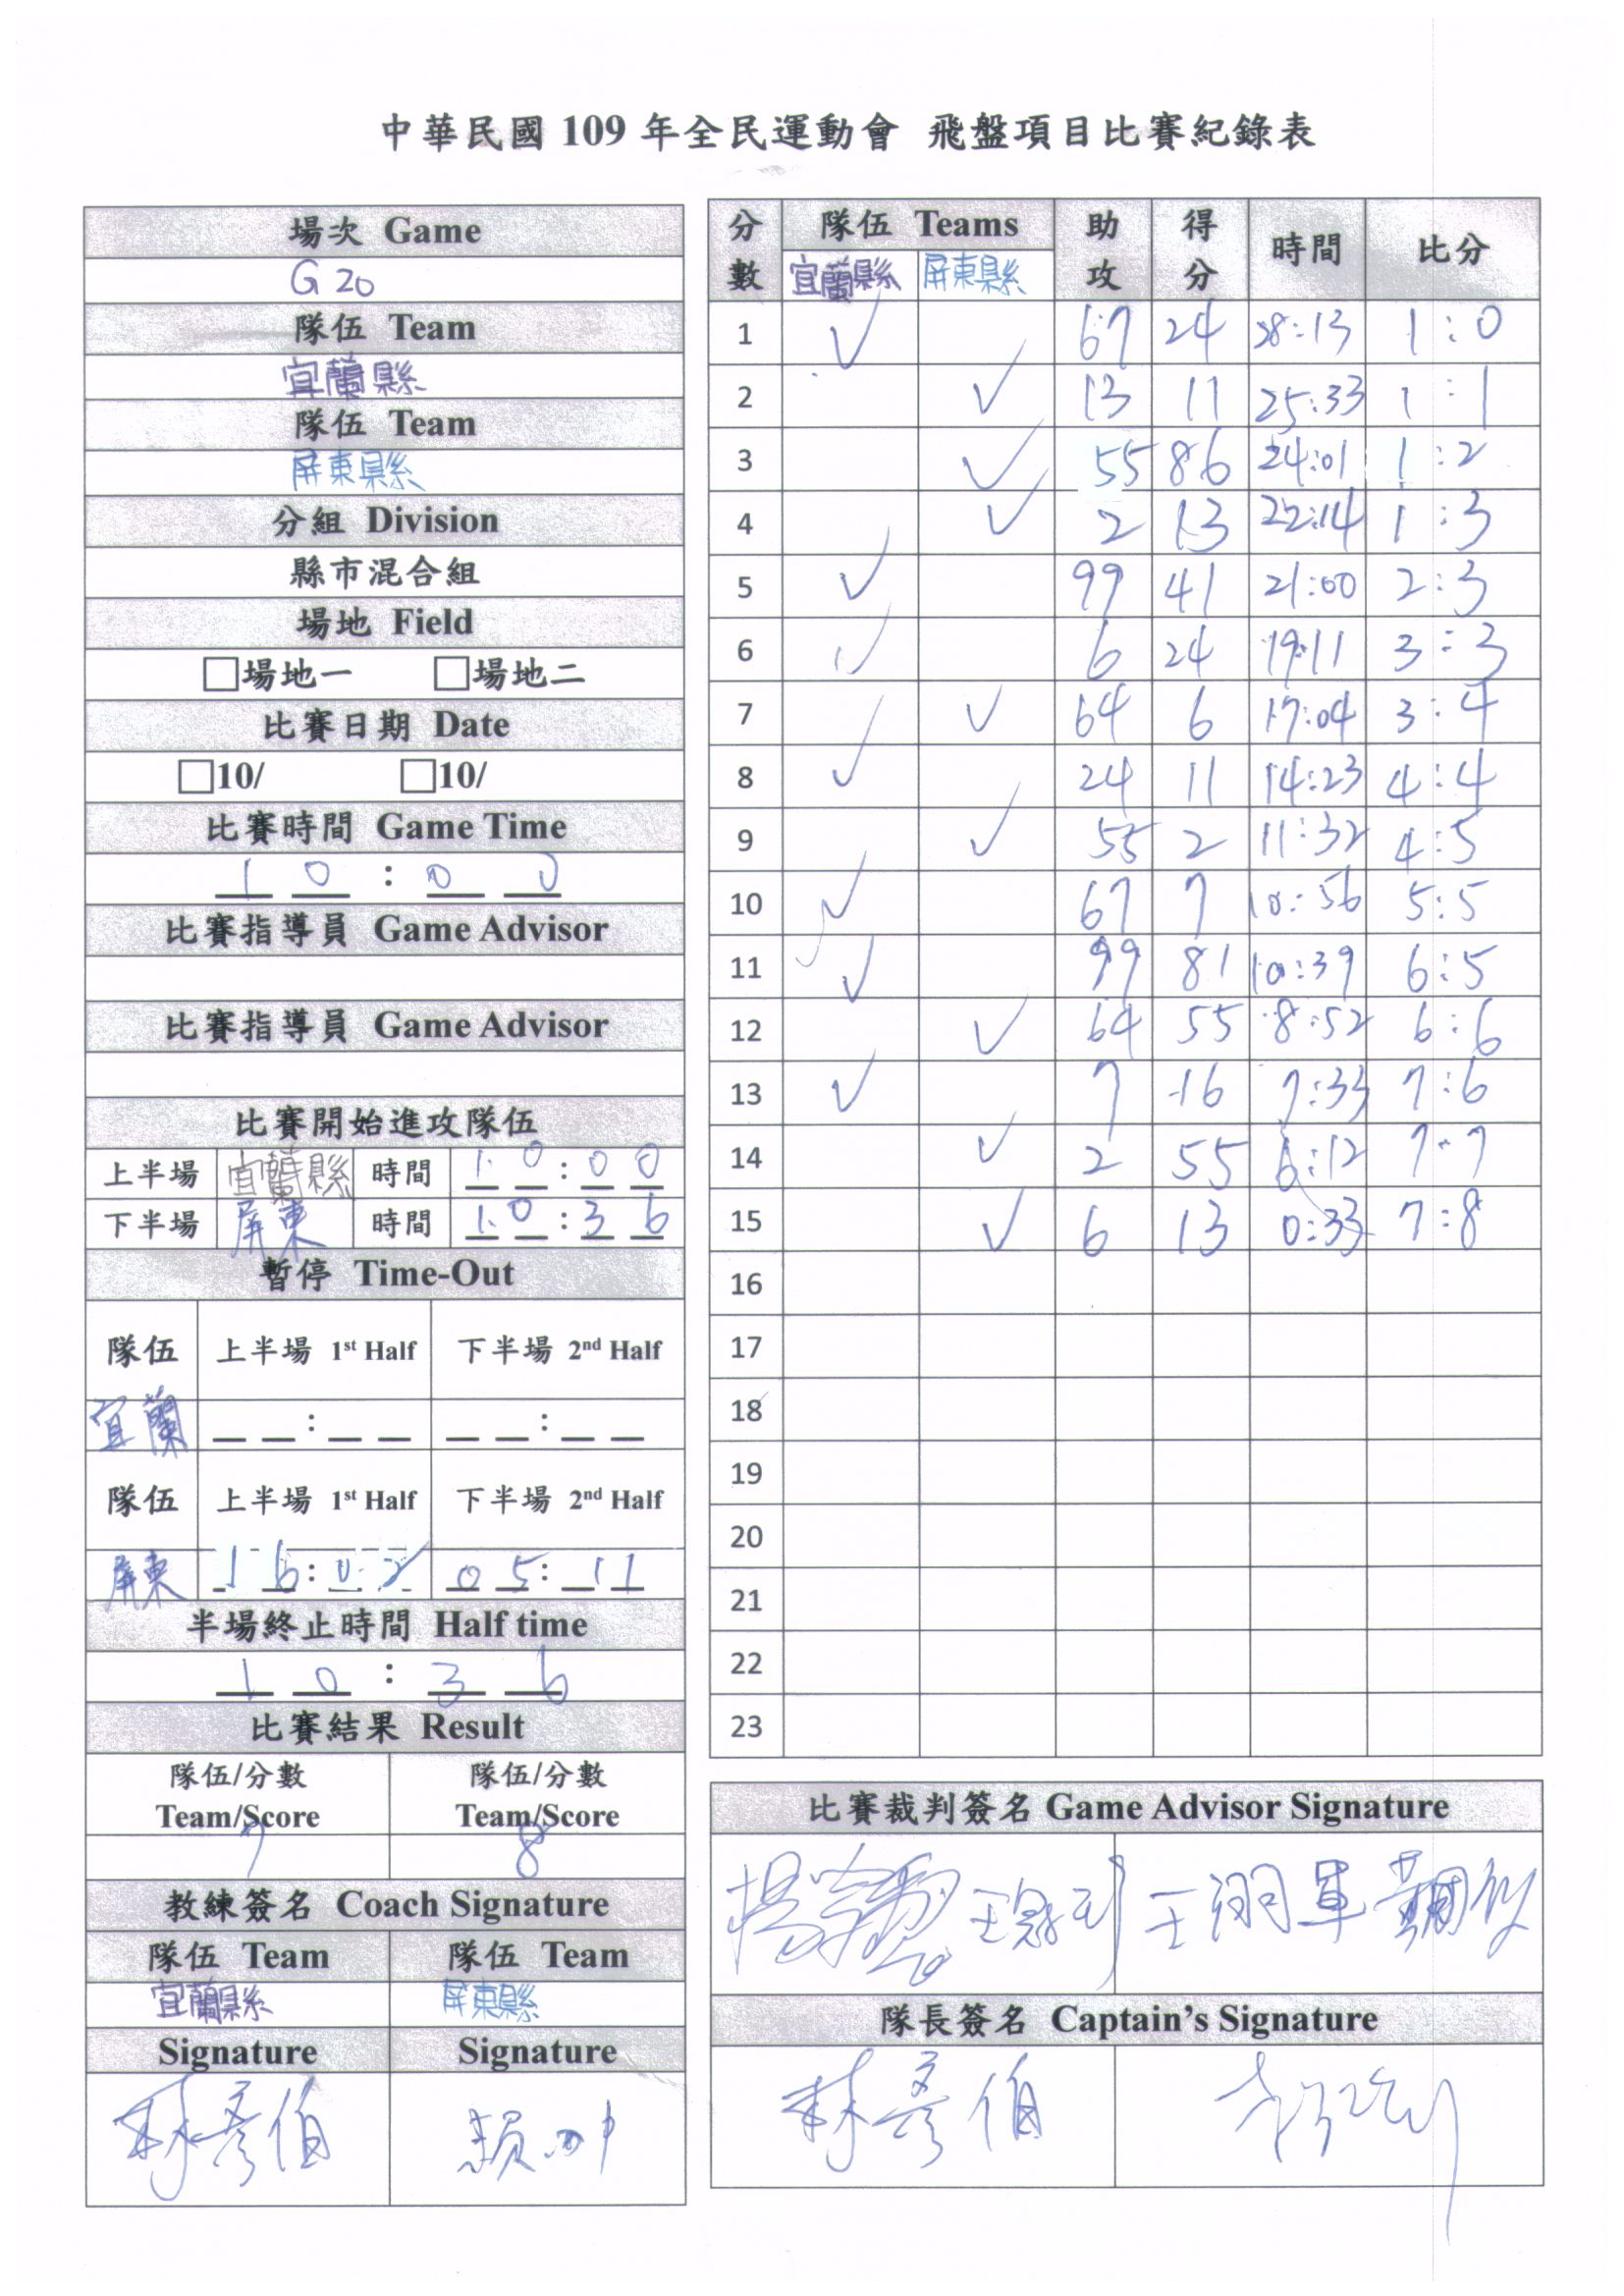 中華民國 109 年全民運動會 飛盤項目比賽紀錄表
場次 Game
G 20
隊伍 Team
宜蘭縣
隊伍 Team
屏東縣
分組 Division
縣市混合組
場地 Field
□場地一 □場地二
比賽日期 Date
□10/ □10/
比賽時間 Game Time
1 0 : 0 0
比賽指導員 Game Advisor
比賽指導員 Game Advisor
比賽開始進攻隊伍
上半場 宜蘭縣 時間 1 0 : 0 0
下半場 屏東 時間 1 0 : 3 6
暫停 Time-Out
隊伍 上半場 1st Half 下半場 2nd Half
宜蘭 _ _ : _ _ _ _ : _ _
隊伍 上半場 1st Half 下半場 2nd Half
屏東 1 6 : 0 2 0 5 : 1 1
半場終止時間 Half time
1 0 : 3 6
比賽結果 Result
隊伍/分數 隊伍/分數
Team/Score Team/Score
7 8
教練簽名 Coach Signature
隊伍 Team 隊伍 Team
宜蘭縣 屏東縣
Signature Signature
林彥伯
分數 隊伍 Teams 助攻 得分 時間 比分
宜蘭縣 屏東縣
1 ✓ 67 24 28:13 1:0
2 ✓ 13 11 25:33 1:1
3 ✓ 55 86 24:01 1:2
4 ✓ 2 13 22:14 1:3
5 ✓ 99 41 21:00 2:3
6 ✓ 6 24 19:11 3:3
7 ✓ 64 6 17:04 3:4
8 ✓ 24 11 14:23 4:4
9 ✓ 55 2 11:32 4:5
10 ✓ 67 7 10:56 5:5
11 ✓ 99 81 10:39 6:5
12 ✓ 64 55 8:52 6:6
13 ✓ 7 16 7:33 7:6
14 ✓ 2 55 6:12 7:7
15 ✓ 6 13 0:33 7:8
16
17
18
19
20
21
22
23
比賽裁判簽名 Game Advisor Signature
王翊軍
隊長簽名 Captain's Signature
林彥伯